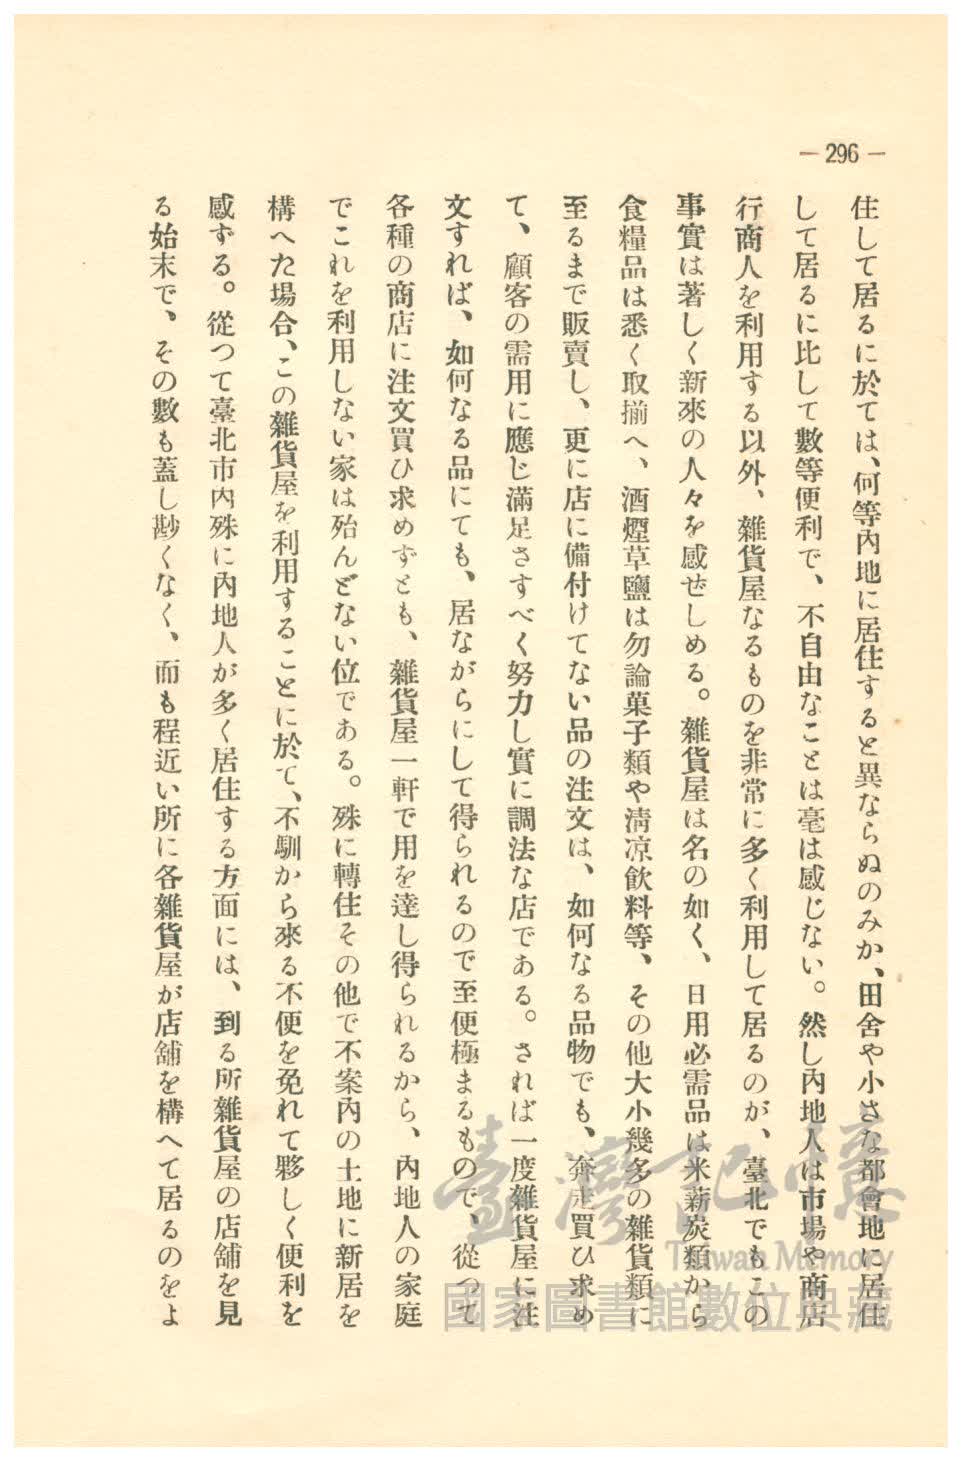 — 296 —
住して居るに於ては、何等內地に居住すると異ならぬのみか、田舍や小さな都會地に居住
して居るに比して數等便利で、不自由なことは毫は感じない。然し內地人は市場や商店
行商人を利用する以外、雜貨屋なるものを非常に多く利用して居るのが、臺北でもこの
事實は著しく新來の人々を感ぜしめる。雜貨屋は名の如く、日用必需品は米薪炭類から
食糧品は悉く取揃へ、酒煙草鹽は勿論菓子類や淸凉飮料等、その他大小幾多の雜貨類に
至るまで販賣し、更に店に備付けてない品の注文は、如何なる品物でも、奔走買ひ求め
て、顧客の需用に應じ滿足さすべく努力し實に調法な店である。されば一度雜貨屋に注
文すれば、如何なる品にても、居ながらにして得られるので至便極まるもので、從つて
各種の商店に注文買ひ求めずとも、雜貨屋一軒で用を達し得られるから、內地人の家庭
でこれを利用しない家は殆んどない位である。殊に轉住その他で不案內の土地に新居を
構へた場合、この雜貨屋を利用することに於て、不馴から來る不便を免れて夥しく便利を
感ずる。從つて臺北市內殊に內地人が多く居住する方面には、到る所雜貨屋の店舖を見
る始末で、その數も蓋し尠くなく、而も程近い所に各雜貨屋が店舖を構へて居るのをよ
臺灣記憶
Taiwan Memory
國家圖書館數位典藏